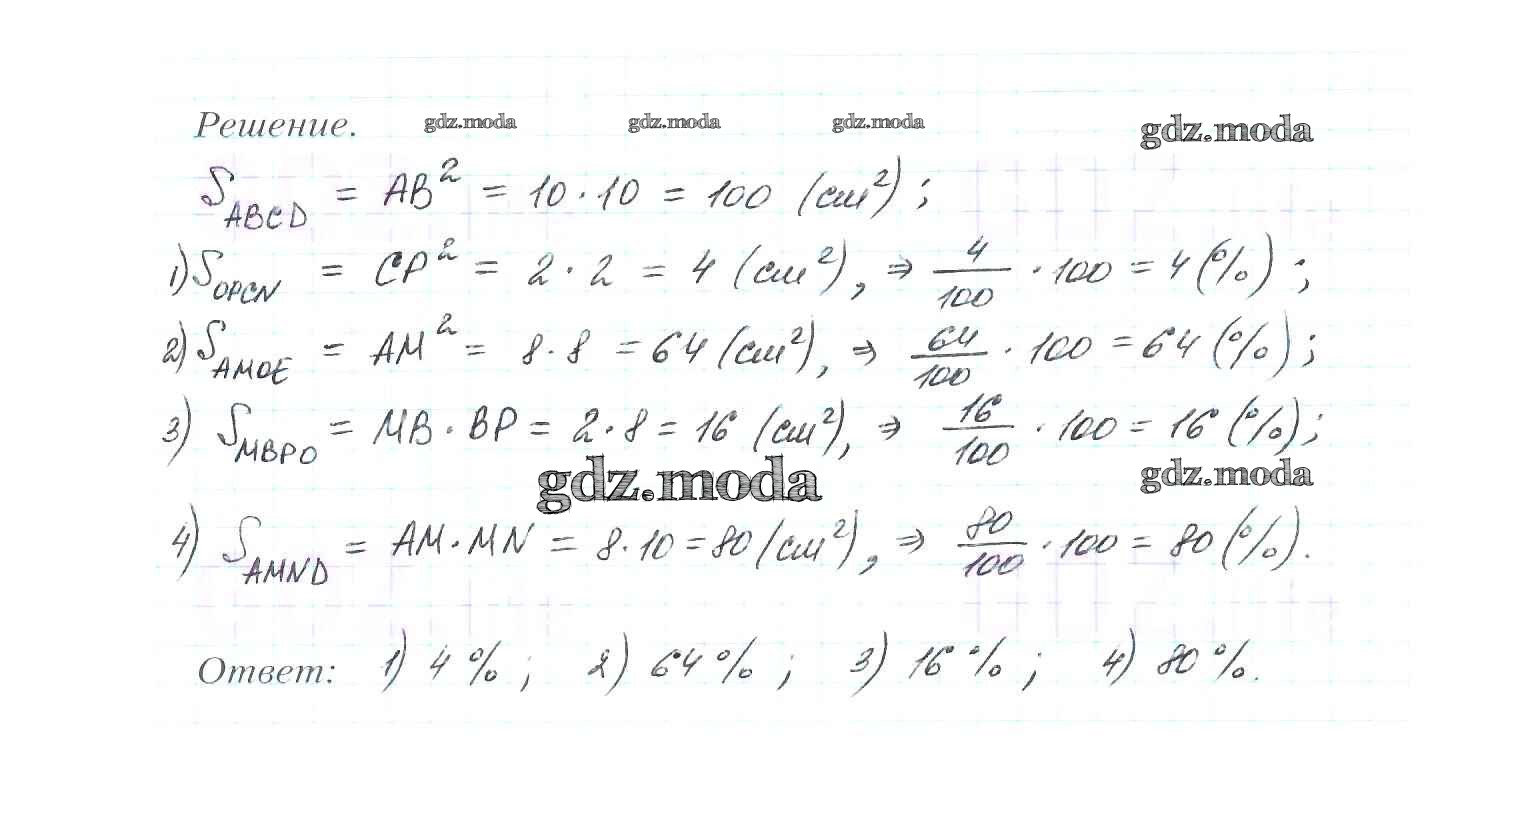 Решение. gdz.moda gdz.moda gdz.moda gdz.moda
S_ABCD = AB² = 10 · 10 = 100 (см²);
1) S_OPCN = CP² = 2 · 2 = 4 (см²), ⇒ 4/100 · 100 = 4 (%);
2) S_AMOE = AM² = 8 · 8 = 64 (см²), ⇒ 64/100 · 100 = 64 (%);
3) S_MBPO = MB · BP = 2 · 8 = 16 (см²), ⇒ 16/100 · 100 = 16 (%);
gdz.moda gdz.moda
4) S_AMND = AM · MN = 8 · 10 = 80 (см²), ⇒ 80/100 · 100 = 80 (%).
Ответ: 1) 4 %; 2) 64 %; 3) 16 %; 4) 80 %.